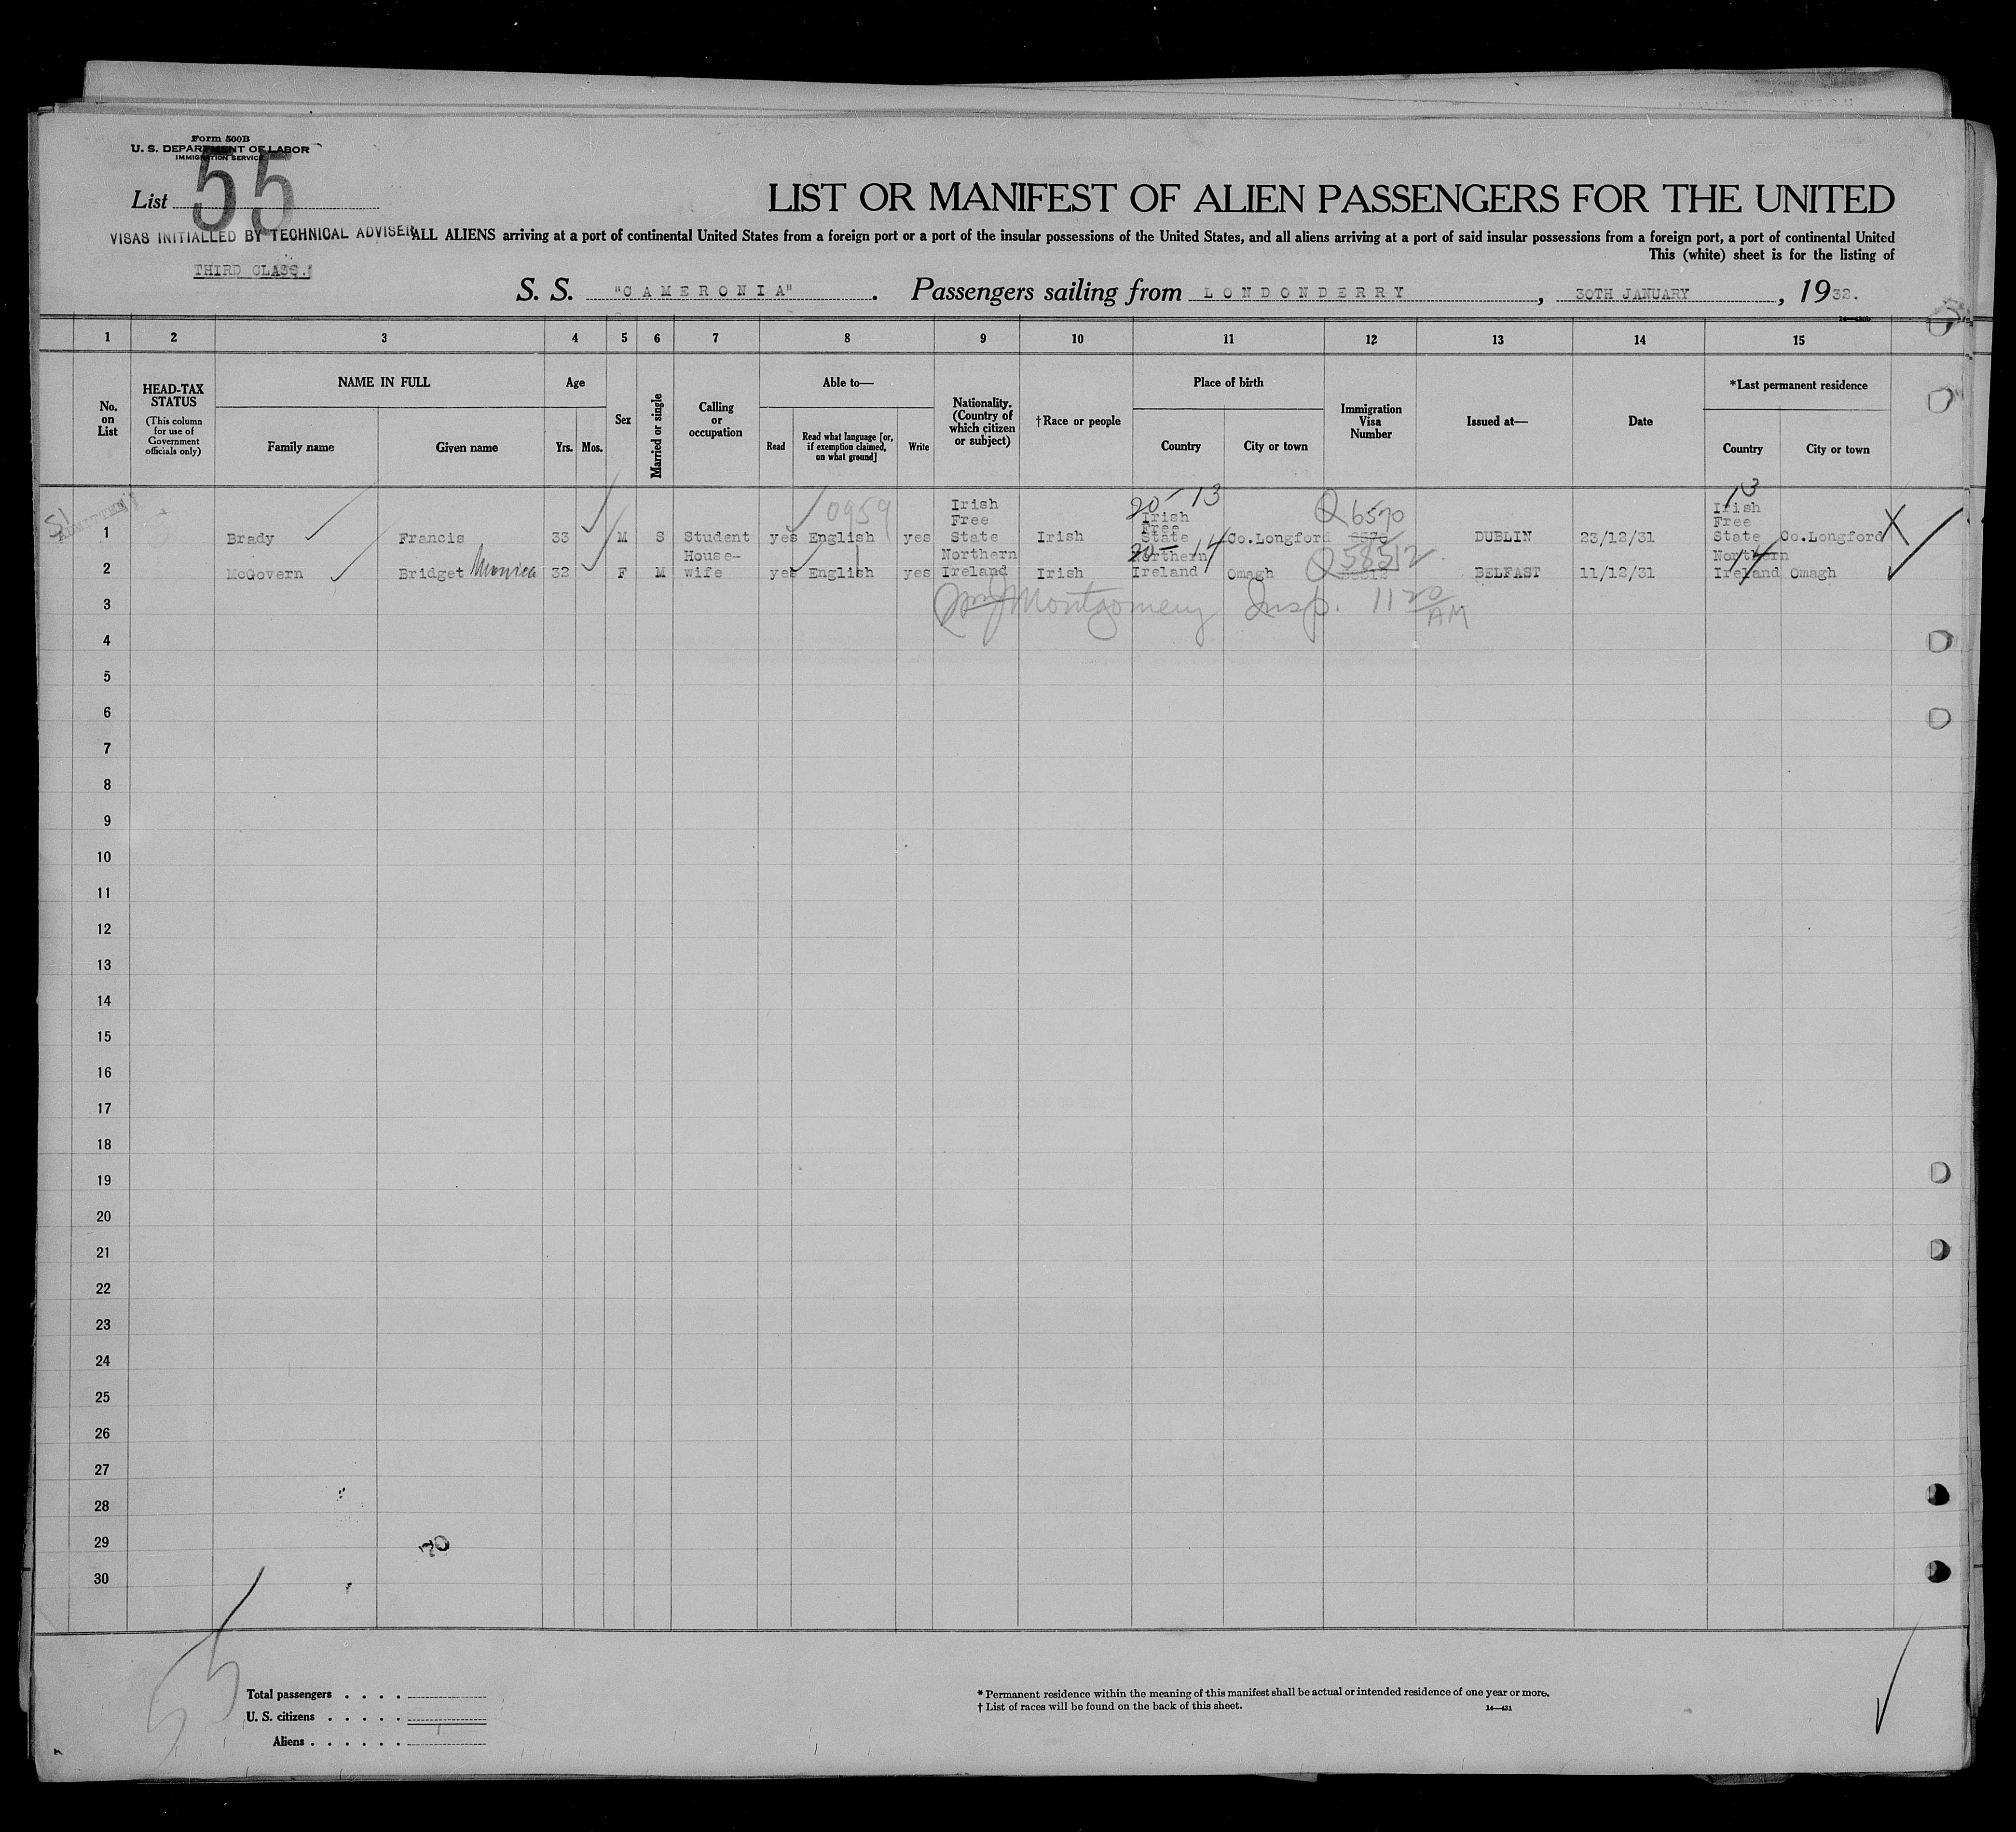 Form 500B
U. S. DEPARTMENT OF LABOR
IMMIGRATION SERVICE
List 55
LIST OR MANIFEST OF ALIEN PASSENGERS FOR THE UNITED
VISAS INITIALLED BY TECHNICAL ADVISER
ALL ALIENS arriving at a port of continental United States from a foreign port or a port of the insular possessions of the United States, and all aliens arriving at a port of said insular possessions from a foreign port, a port of continental United
This (white) sheet is for the listing of
THIRD CLASS.
S. S. "CAMERONIA". Passengers sailing from LONDONDERRY, 30TH JANUARY, 1932.
1 2 3 4 5 6 7 8 9 10 11 12 13 14 15
No. on List
HEAD-TAX STATUS
(This column for use of Government officials only)
NAME IN FULL
Family name
Given name
Age
Yrs.
Mos.
Sex
Married or single
Calling or occupation
Able to—
Read
Read what language [or, if exemption claimed, on what ground]
Write
Nationality. (Country of which citizen or subject)
†Race or people
Place of birth
Country
City or town
Immigration Visa Number
Issued at—
Date
*Last permanent residence
Country
City or town
SI
ADMITTED
0959
20-13
13
1 Brady Francis 33 M S Student yes English yes Irish Free State Irish Irish Free State Co.Longford Q 6570 6570 DUBLIN 23/12/31 Irish Free State Co.Longford X
20-14
14
2 McGovern Bridget Monica 32 F M House-wife yes English yes Northern Ireland Irish Northern Ireland Omagh Q 58512 BELFAST 11/12/31 Northern Ireland Omagh
3 Montgomery Insp. 11 20 AM
4
5
6
7
8
9
10
11
12
13
14
15
16
17
18
19
20
21
22
23
24
25
26
27
28
29
30
55
Total passengers . . . .
U. S. citizens . . . . .
Aliens . . . . . .
* Permanent residence within the meaning of this manifest shall be actual or intended residence of one year or more.
† List of races will be found on the back of this sheet.
14—431